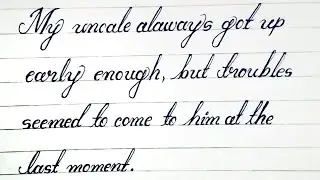 My uncale alaways got up
early enough, but troubles
seemed to come to him at the
last moment.